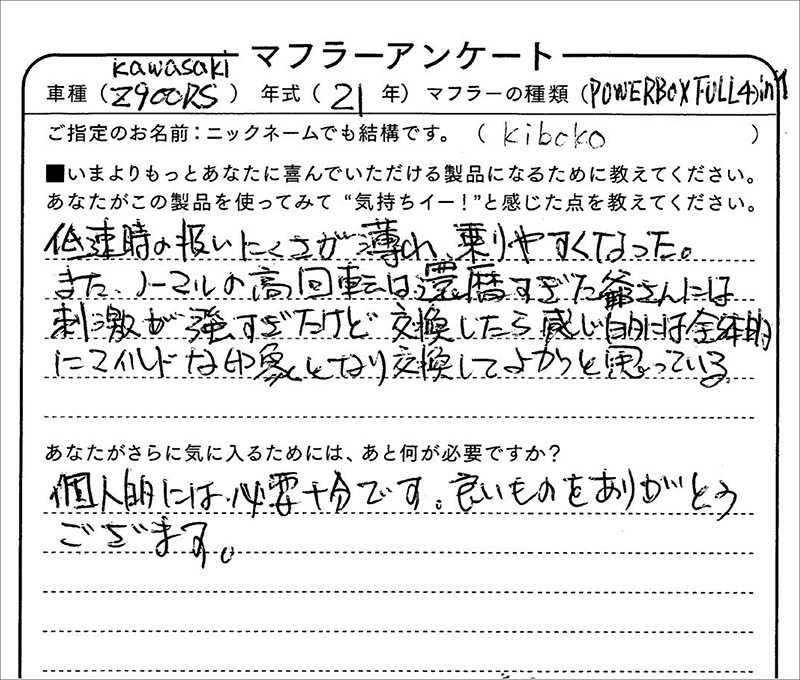 マフラーアンケート
kawasaki
車種（Z900RS）　年式（21　年）マフラーの種類（POWERBOX FULL4)in1
ご指定のお名前：ニックネームでも結構です。（ kiboko ）
■いまよりもっとあなたに喜んでいただける製品になるために教えてください。
あなたがこの製品を使ってみて“気持ちイー！”と感じた点を教えてください。
低速時の扱いにくさが薄れ、乗りやすくなった。
また、ノーマルの高回転は還暦すぎた爺さんには
刺激が強すぎたけど交換したら感じ的には全体的
にマイルドな印象となり交換してよかっと思っている。
あなたがさらに気に入るためには、あと何が必要ですか？
個人的には必要十分です。良いものをありがとう
ございます。